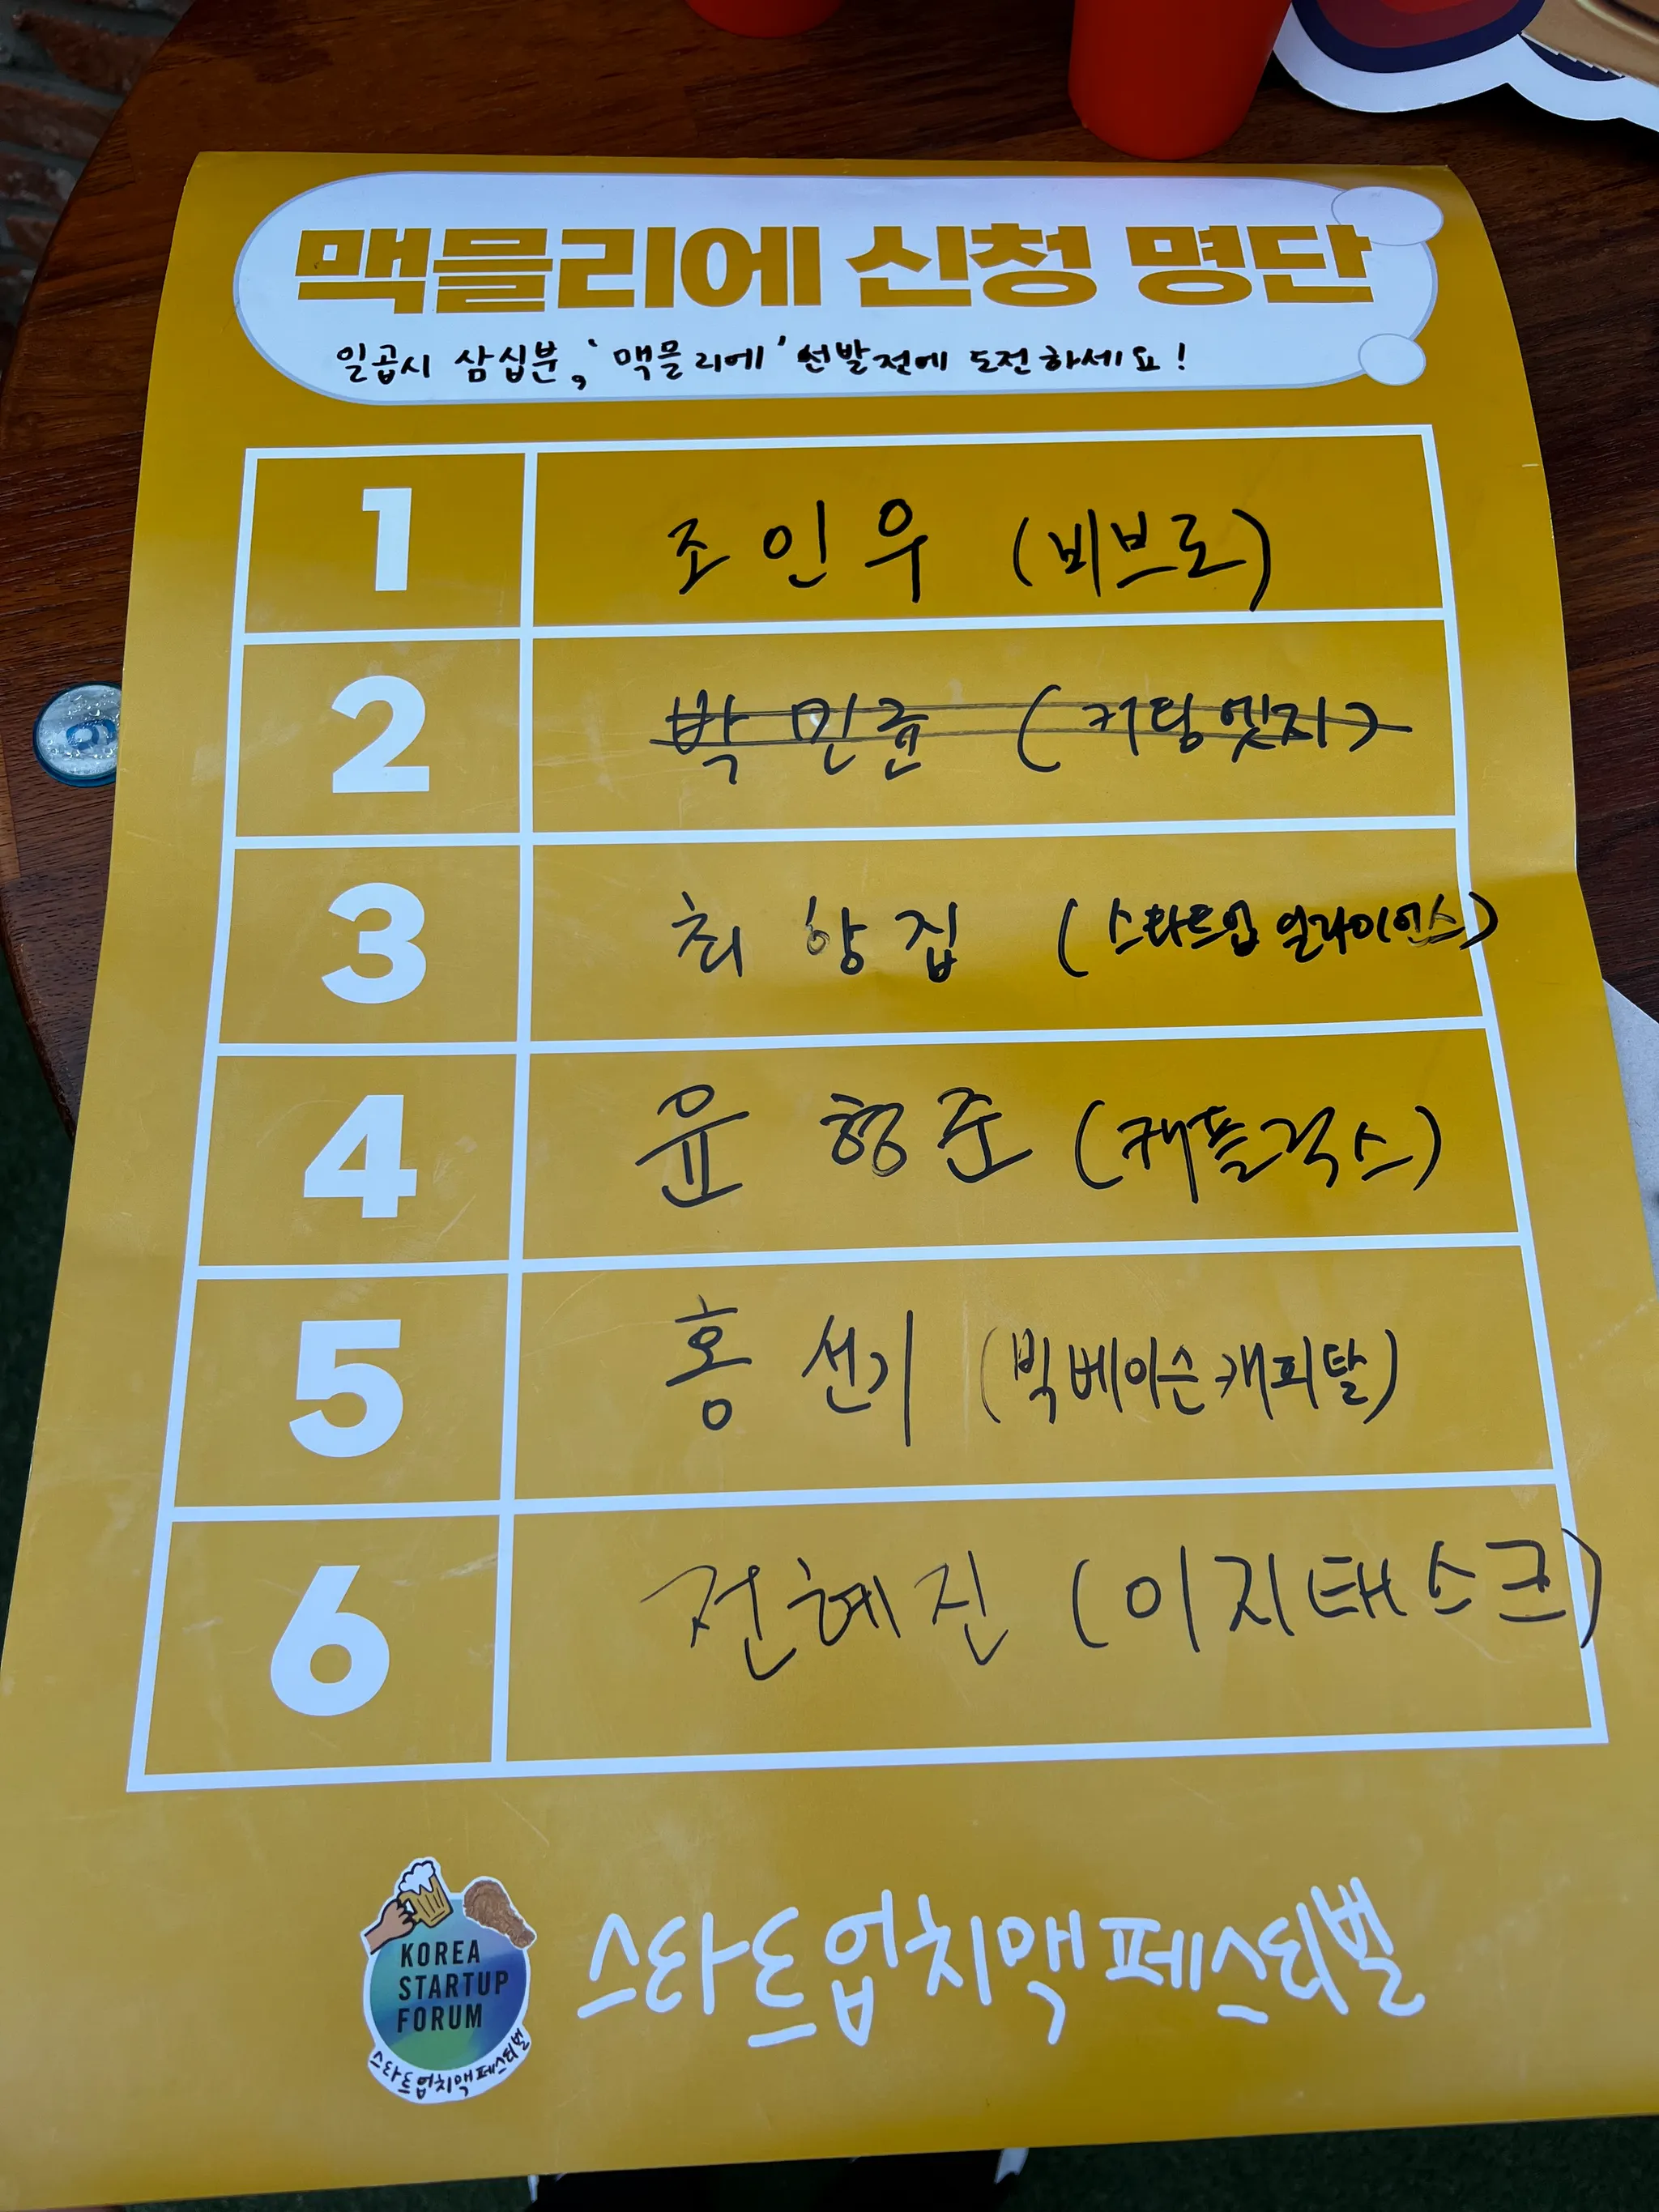 맥믈리에 신청 명단
일곱시 삼십분, '맥믈리에' 선발전에 도전하세요!
1 조인우 (비브로)
2 박민준 (커팅엣지)
3 최항집 (스타트업 얼라이언스)
4 윤형준 (캐플릭스)
5 홍선기 (빅베이슨캐피탈)
6 전혜진 (이지태스크)
KOREA
STARTUP
FORUM
스타트업치맥페스티벌
스타트업치맥페스티벌